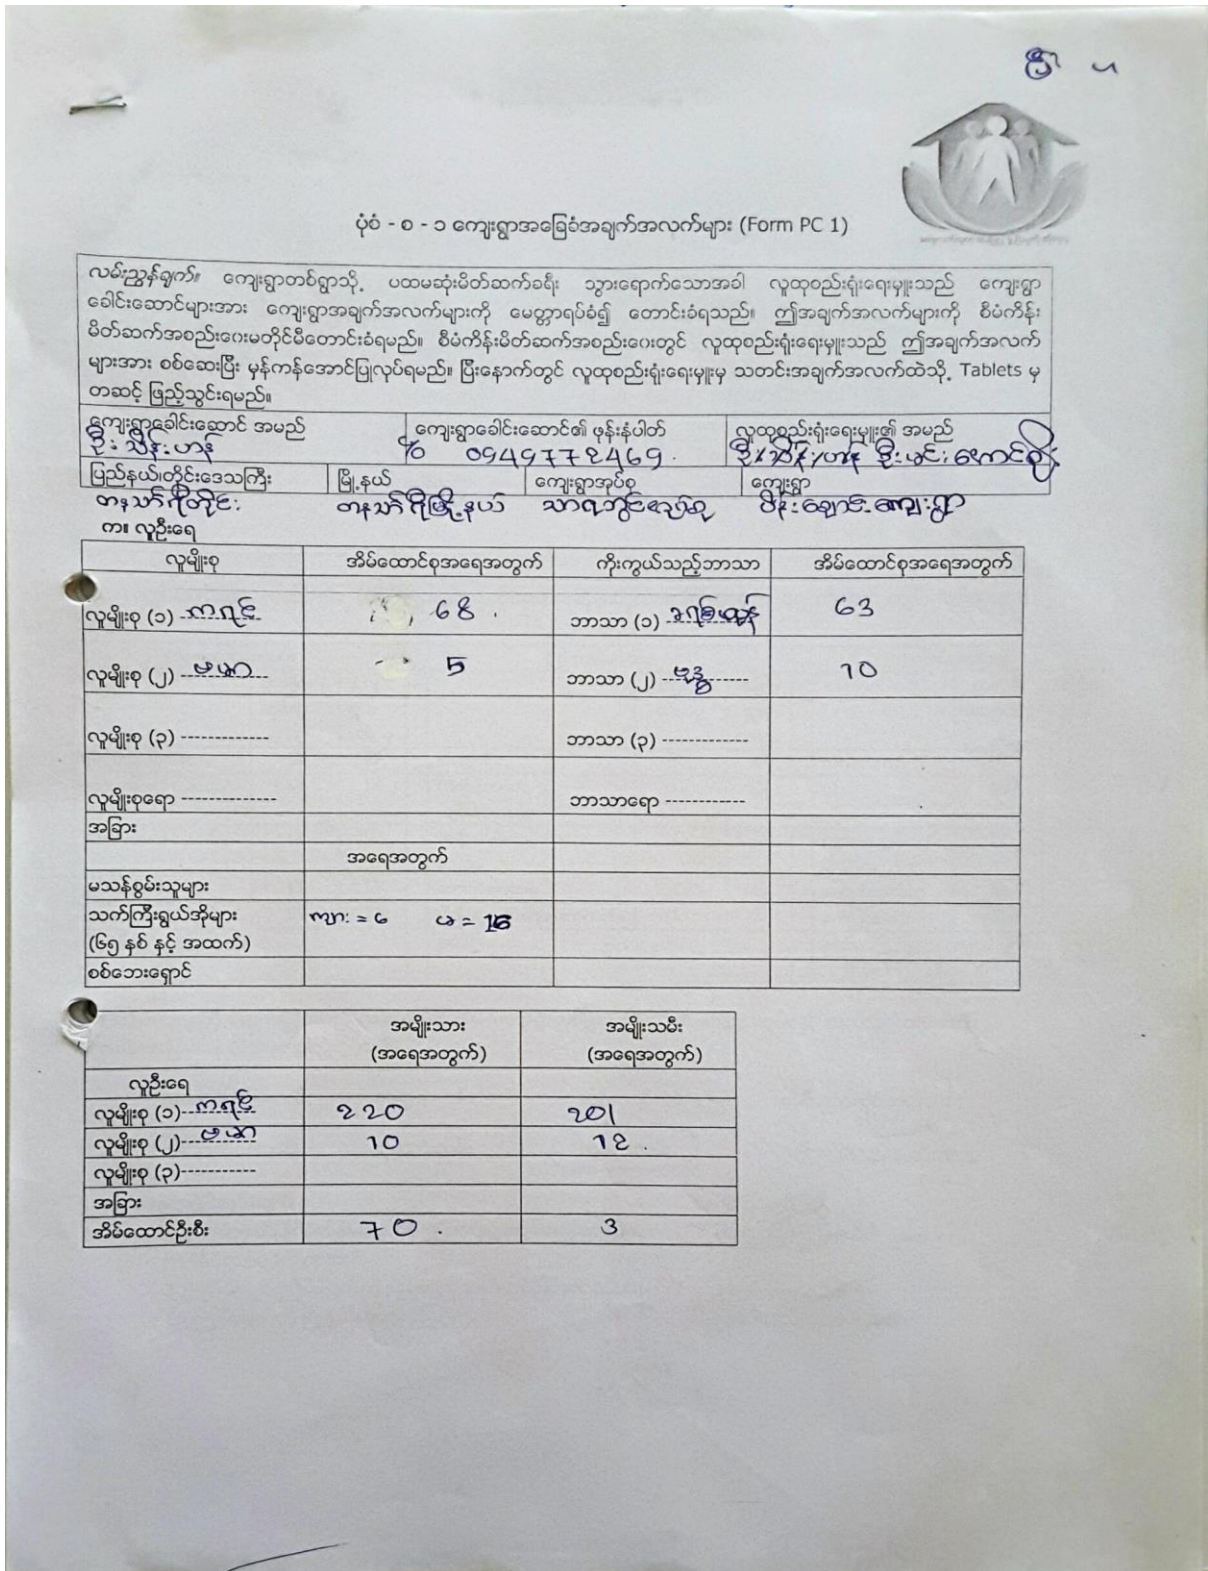 ပုံစံ - စ - ၁ ကျေးရွာအခြေခံအချက်အလက်များ (Form PC 1)
လမ်းညွှန်ချက်။ ကျေးရွာတစ်ရွာသို့ ပထမဆုံးမိတ်ဆက်ခရီး သွားရောက်သောအခါ လူထုစည်းရုံးရေးမှူးသည် ကျေးရွာ
ခေါင်းဆောင်များအား ကျေးရွာအချက်အလက်များကို မေတ္တာရပ်ခံ၍ တောင်းခံရသည်။ ဤအချက်အလက်များကို စီမံကိန်း
မိတ်ဆက်အစည်းဝေးမတိုင်မီတောင်းခံရမည်။ စီမံကိန်းမိတ်ဆက်အစည်းဝေးတွင် လူထုစည်းရုံးရေးမှူးသည် ဤအချက်အလက်
များအား စစ်ဆေးပြီး မှန်ကန်အောင်ပြုလုပ်ရမည်။ ပြီးနောက်တွင် လူထုစည်းရုံးရေးမှူးမှ သတင်းအချက်အလက်ထဲသို့ Tablets မှ
တဆင့် ဖြည့်သွင်းရမည်။
ကျေးရွာခေါင်းဆောင် အမည် ကျေးရွာခေါင်းဆောင်၏ ဖုန်းနံပါတ် လူထုစည်းရုံးရေးမှူး၏ အမည်
ဦးသိန်းဟန် % 0949772469. ဦးသိန်းဟန် ဦးမင်းအောင်စိုး
ပြည်နယ်၊တိုင်းဒေသကြီး မြို့နယ် ကျေးရွာအုပ်စု ကျေးရွာ
တနသာ်ရီတိုင်း တနသာ်ရီမြို့နယ် သာရဘွင်အုပ်စု
က။ လူဦးရေ
လူမျိုးစု အိမ်ထောင်စုအရေအတွက် ကိုးကွယ်သည့်ဘာသာ အိမ်ထောင်စုအရေအတွက်
လူမျိုးစု (၁) ကရင် 68 . ဘာသာ (၁) ခရစ်ယာန် 63
လူမျိုးစု (၂) ဗမာ 5 ဘာသာ (၂) ဗုဒ္ဓ 10
လူမျိုးစု (၃) ------------- ဘာသာ (၃) -------------
လူမျိုးစုရော -------------- ဘာသာရော ------------
အခြား
အရေအတွက်
မသန်စွမ်းသူများ
သက်ကြီးရွယ်အိုများ ကျား = ၆ မ = 16
(၆၅ နှစ် နှင့် အထက်)
စစ်ဘေးရှောင်
အမျိုးသား အမျိုးသမီး
(အရေအတွက်) (အရေအတွက်)
လူဦးရေ
လူမျိုးစု (၁) ကရင် 220 201
လူမျိုးစု (၂) ဗမာ 10 12 .
လူမျိုးစု (၃)-----------
အခြား
အိမ်ထောင်ဦးစီး 70 . 3